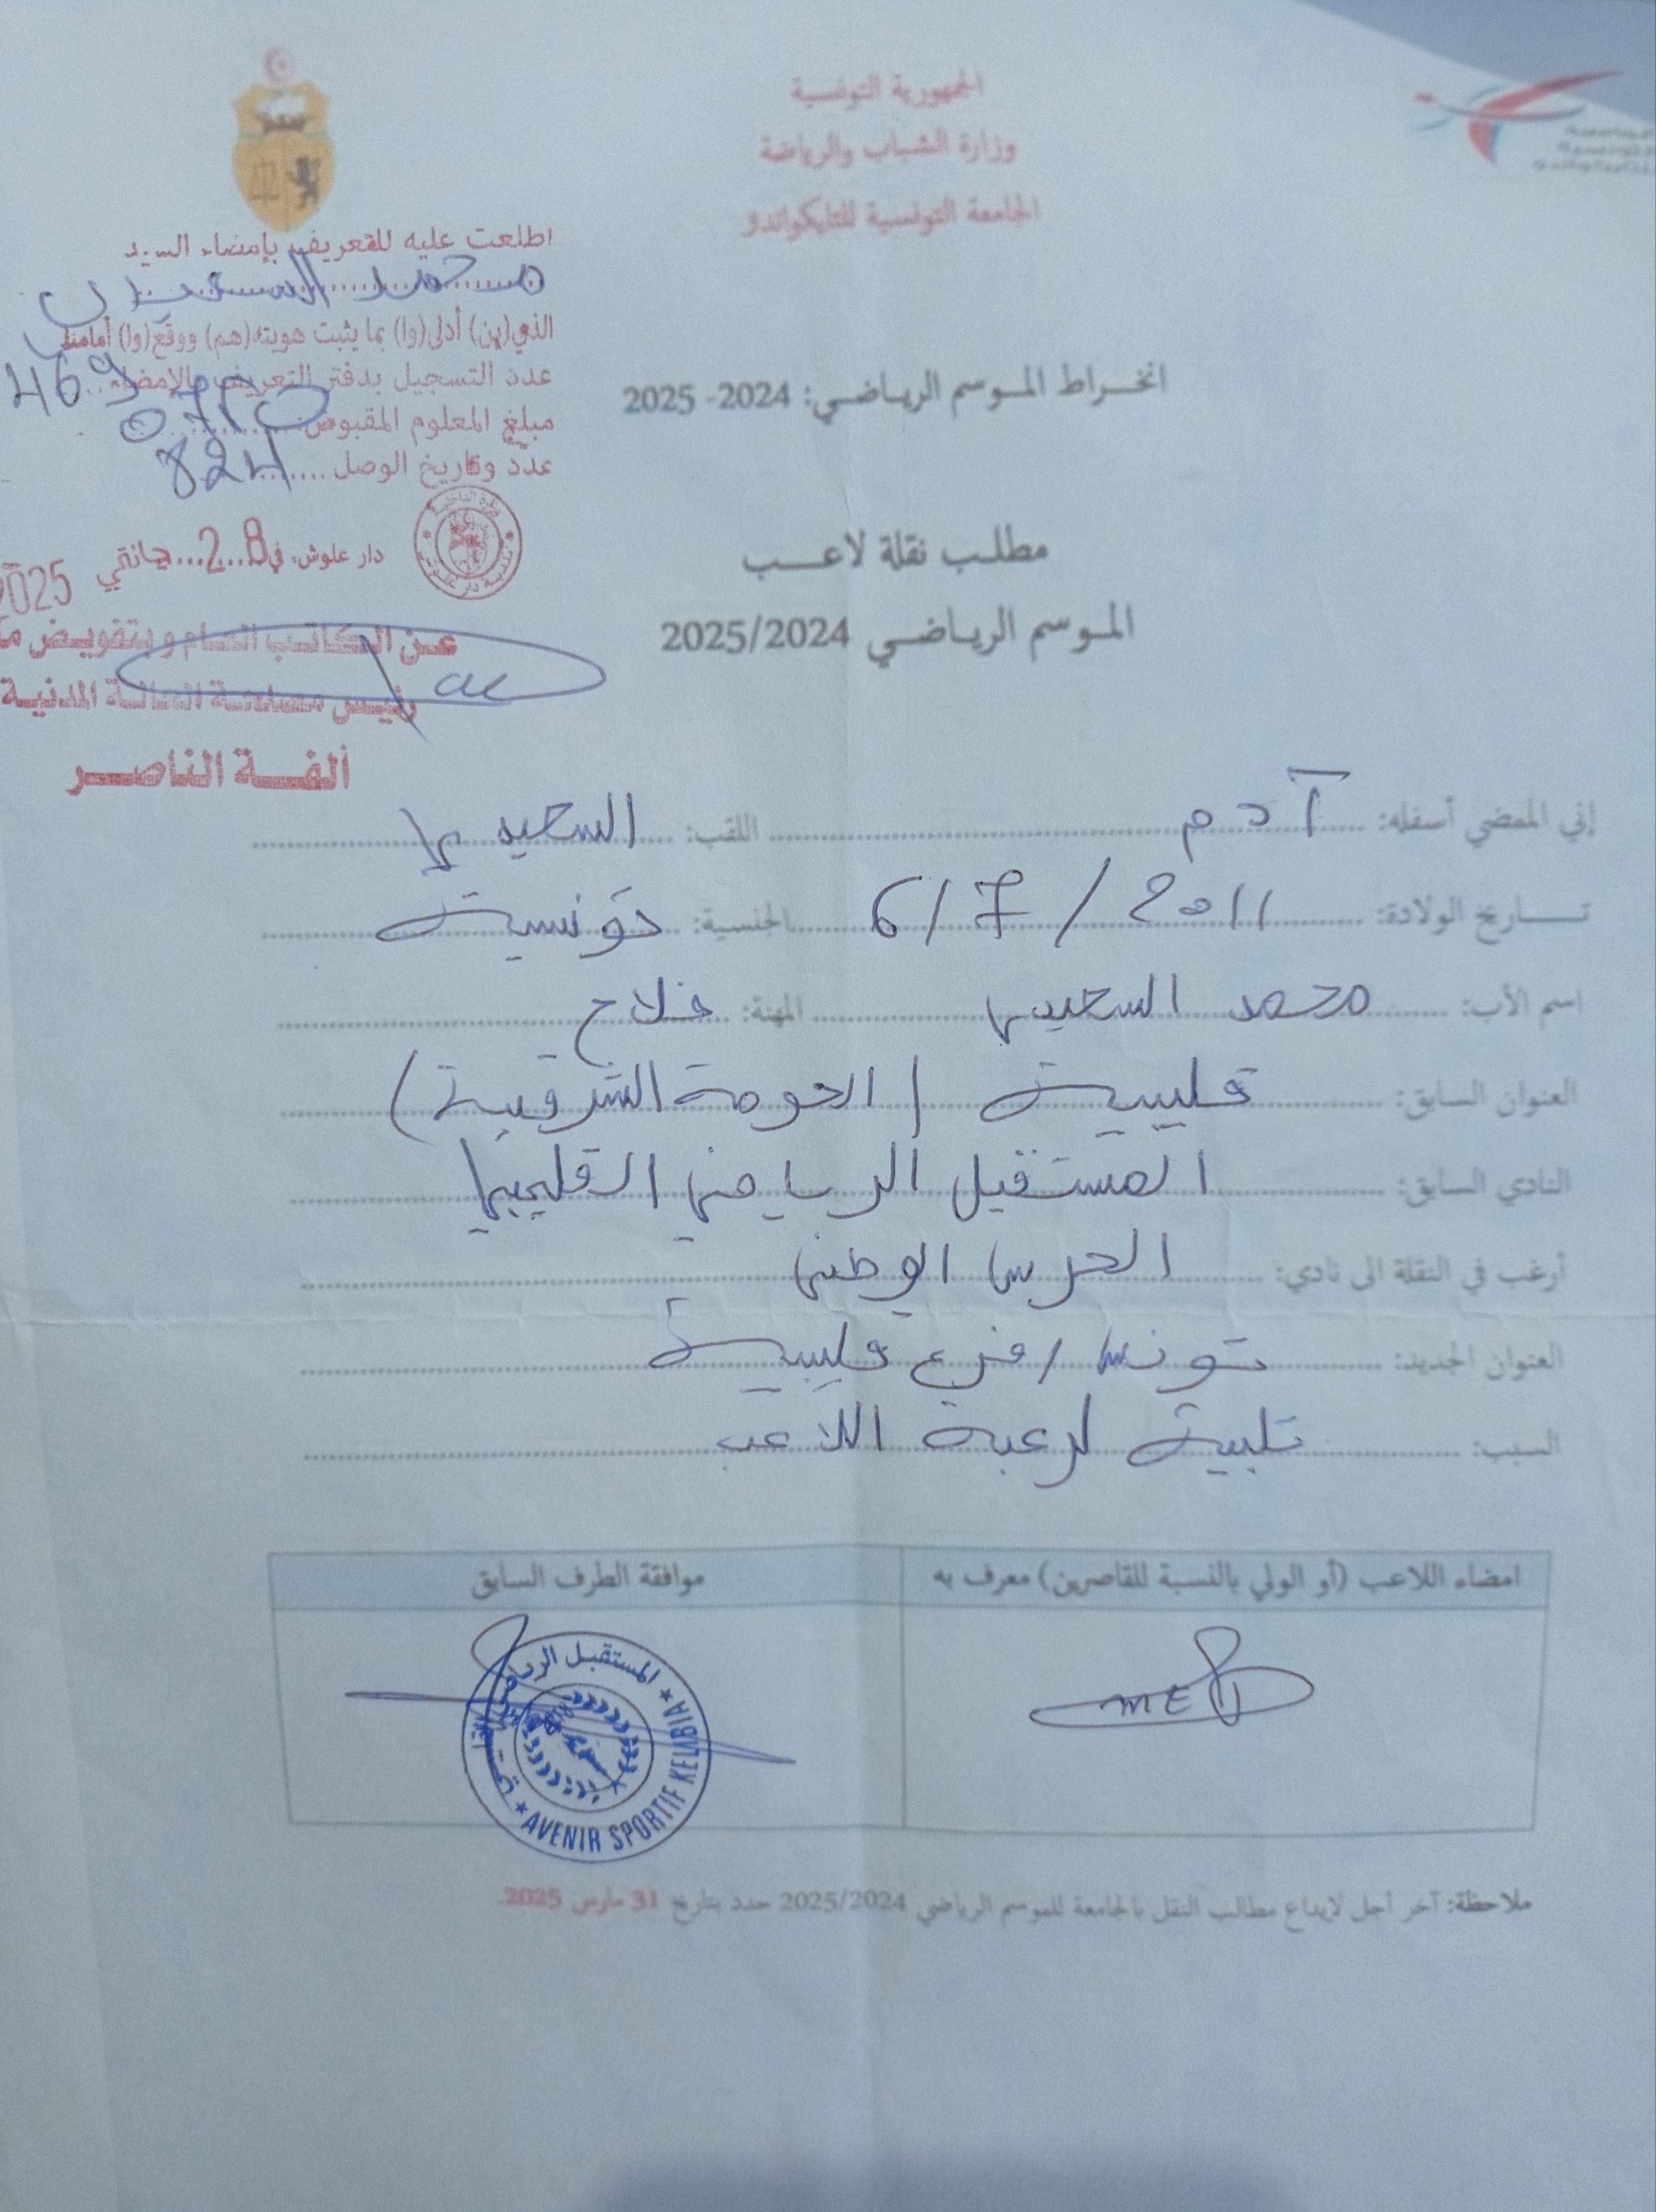 الجمهورية التونسية
وزارة الشباب والرياضة
الجامعة التونسية للتايكواندو
اطلعت عليه للتعريف بإمضاء السيد
محمد السعيدي
الذي(ين) أدلى(وا) بما يثبت هويته(هم) ووقع(وا) أمامنا
عدد التسجيل بدفتر التعريف بالإمضاء 469
مبلغ المعلوم المقبوض
عدد وتاريخ الوصل 824
دار علوش، في 28 جانفي 2025
عن الكاتب العام وبتفويض
رئيس مصلحة الحالة المدنية
ألفة الناصر
انخراط الموسم الرياضي: 2024- 2025
مطلب نقلة لاعب
الموسم الرياضي 2025/2024
إني الممضي أسفله: آدم اللقب: السعيدي
تاريخ الولادة: 6/7/2011 الجنسية: تونسية
اسم الأب: محمد السعيدي المهنة: فلاح
العنوان السابق: قليبية (الحومة الشرقية)
النادي السابق: المستقبل الرياضي القليبي
أرغب في النقلة الى نادي: الحرس الوطني
العنوان الجديد: تونس / فرع قليبية
السبب: تلبية لرغبة اللاعب
امضاء اللاعب (أو الولي بالنسبة للقاصرين) معرف به
موافقة الطرف السابق
المستقبل الرياضي
AVENIR SPORTIF KELIBIA
ملاحظة: آخر أجل لإيداع مطالب النقل بالجامعة للموسم الرياضي 2025/2024 حدد بتاريخ 31 مارس 2025.